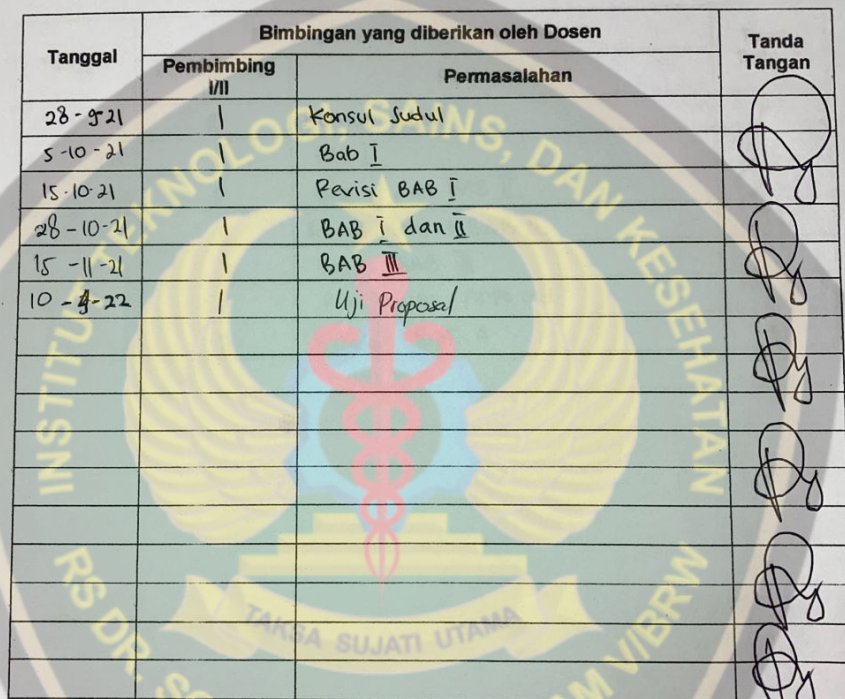 Tanggal
Bimbingan yang diberikan oleh Dosen
Tanda
Tangan
Pembimbing
I/II
Permasalahan
28-9-21 I Konsul Judul
5-10-21 I Bab I
15-10-21 I Revisi BAB I
28-10-21 I BAB I dan II
15-11-21 I BAB III
10 - -22 I Uji Proposal
INSTITUT TEKNOLOGI, SAINS, DAN KESEHATAN
RS DR. VIBRW
TAKSA SUJATI UTAMA